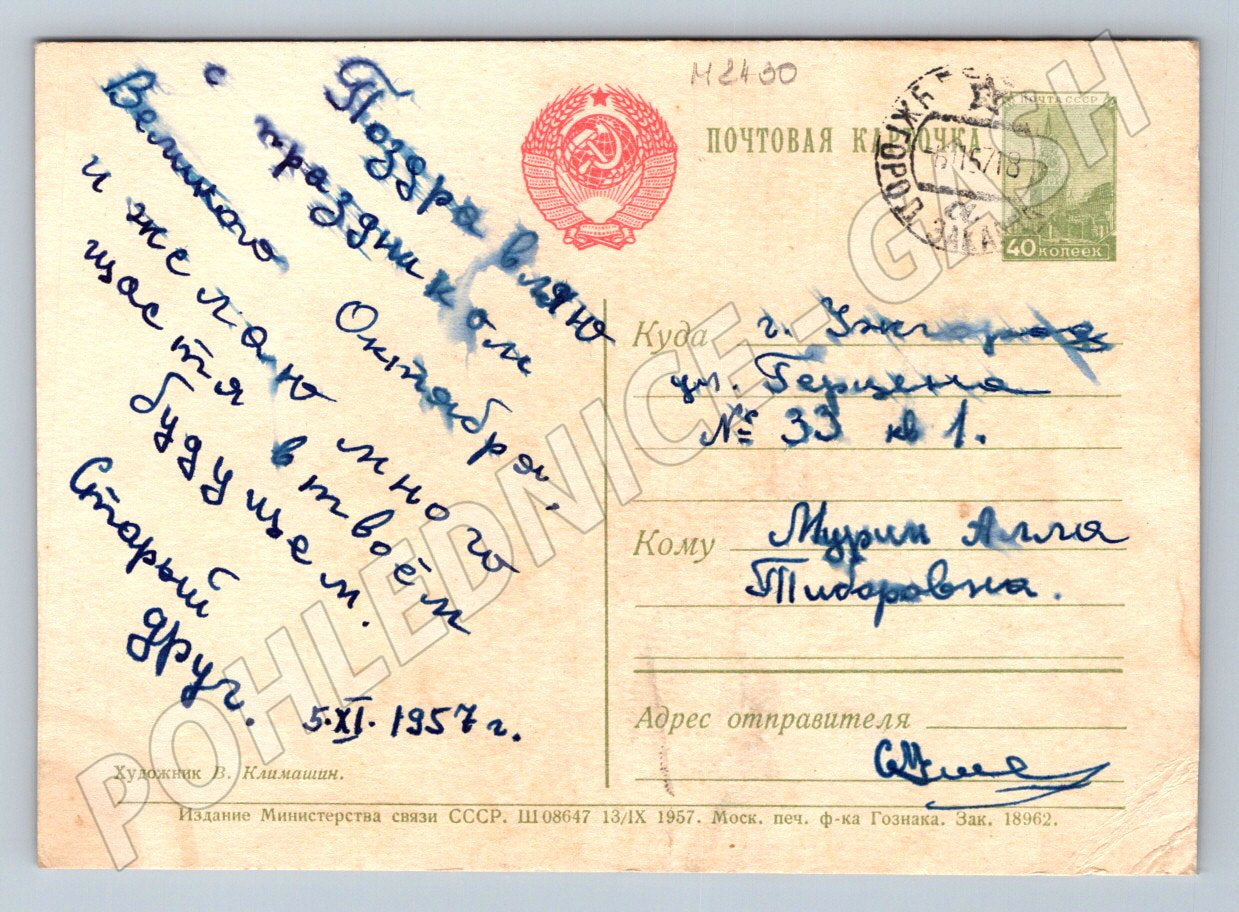 М2400
ПОЧТОВАЯ КАРТОЧКА
ПОЧТА СССР
40 копеек
УЖГОРОД
Поздравляю
с праздником
Великого Октября,
и желаю много
щастя в твоём
будущем.
Старый
друг.
5.XI.1957г.
Художник В. Климашин.
Куда г. Ужгород
ул. Герцена
№ 33 кв 1.
Кому Мурин Алла
Тиборовна.
Адрес отправителя
Издание Министерства связи СССР. Ш 08647 13/IX 1957. Моск. печ. ф-ка Гознака. Зак. 18962.
POHLEDNICE - GASH